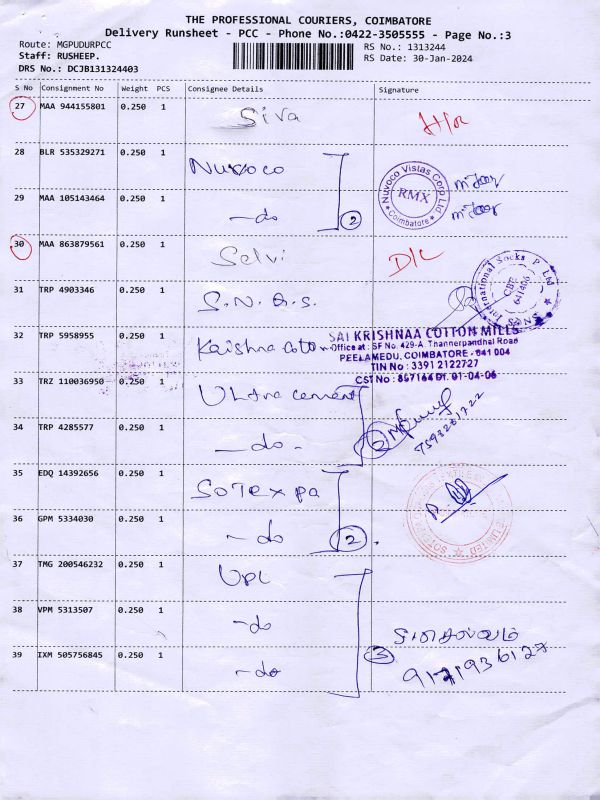 THE PROFESSIONAL COURIERS, COIMBATORE
Delivery Runsheet - PCC - Phone No.:0422-3505555 - Page No.:3
Route: MGPUDURPCC
RS No.: 1313244
Staff: RUSHEEP.
RS Date: 30-Jan-2024
DRS No.: DCJB131324403
S No Consignment No Weight PCS Consignee Details Signature
27 MAA 944155801 0.250 1 Siva
28 BLR 535329271 0.250 1 Nuvoco
Nuvoco Vistas Corp Ltd
RMX
Coimbatore
29 MAA 105143464 0.250 1 -do 2
30 MAA 863879561 0.250 1 Selvi D/L
31 TRP 4903346 0.250 1 S.N.Q.S.
S N Q S International Socks P Ltd
CBE
641406
32 TRP 5958955 0.250 1 Krishna Cotton
SAI KRISHNAA COTTON MILLS
Office at : SF No. 429-A, Thannerpandhal Road
PEELAMEDU, COIMBATORE - 641 004
TIN No : 3391 2122727
CST No : 857164 Dt. 01-04-06
33 TRZ 110036950 0.250 1 Ultra cement
34 TRP 4285577 0.250 1 -do- 2
35 EDQ 14392656 0.250 1 Sotexpa
36 GPM 5334030 0.250 1 -do 2
37 TMG 200546232 0.250 1 UPL
38 VPM 5313507 0.250 1 -do
39 IXM 505756845 0.250 1 -do 3